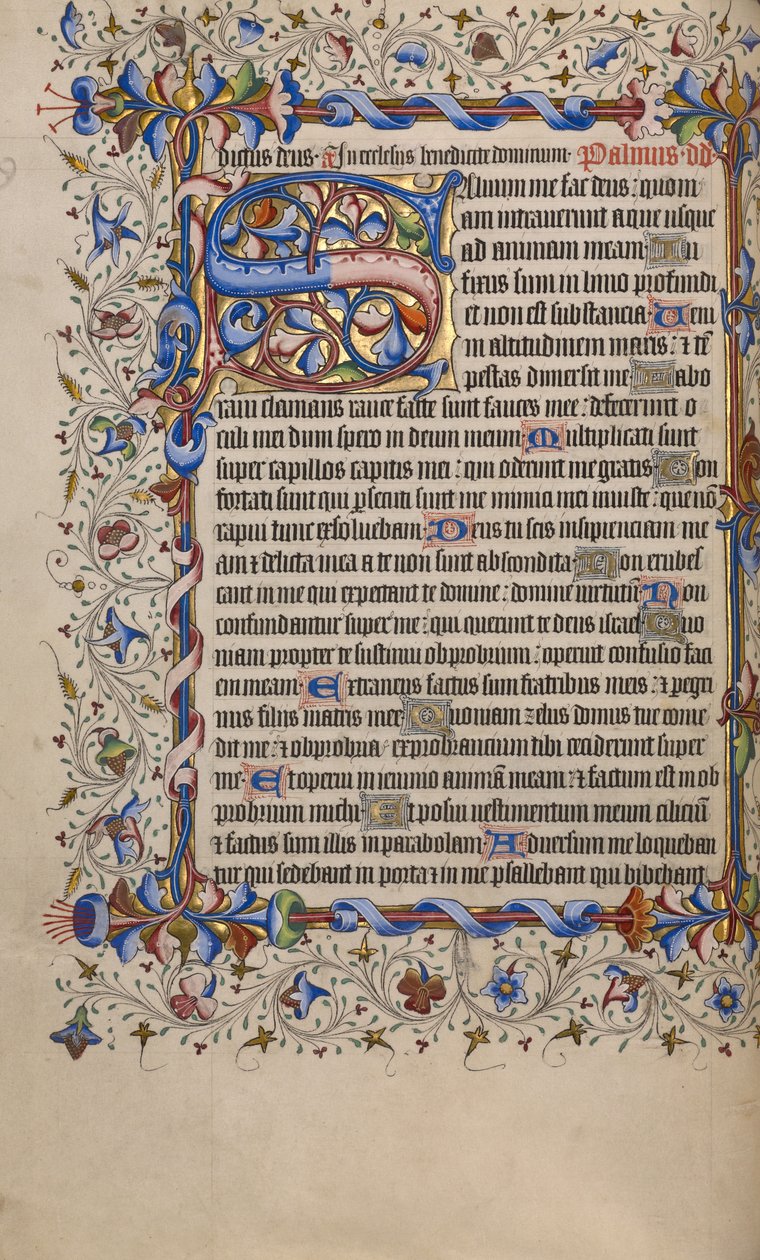 dictus deus. a In ecclesiis benedicite dominum. Psalmus dd
Saluum me fac deus: quoni
am intrauerunt aque usque
ad animam meam In
fixus sum in limo profundi
et non est substancia Ueni
in altitudinem maris: ⁊ tē
pestas dimersit me Labo
raui clamans rauce facte sunt fauces mee: defecerunt o
culi mei dum spero in deum meum Multiplicati sunt
super capillos capitis mei: qui oderunt me gratis Con
fortati sunt qui ꝑsecuti sunt me inimici mei iniuste: que nō
rapui tunc exsoluebam Deus tu scis insipienciam me
am ⁊ delicta mea a te non sunt abscondita Non erubes
cant in me qui expectant te domine: domine uirtutū Non
confundantur super me: qui querunt te deus israel Quo
niam propter te sustinui obprobrium: operuit confusio faci
em meam Extraneus factus sum fratribus meis: ⁊ ꝑegri
nus filijs matris mee Quoniam zelus domus tue come
dit me: ⁊ obprobria exprobrancium tibi ceciderunt super
me Et operui in ieiunio animā meam: ⁊ factum est in ob
probrium michi Et posui uestimentum meum ciliciū
⁊ factus sum illis in parabolam Aduersum me loqueban
tur qui sedebant in porta: ⁊ in me psallebant qui bibebant